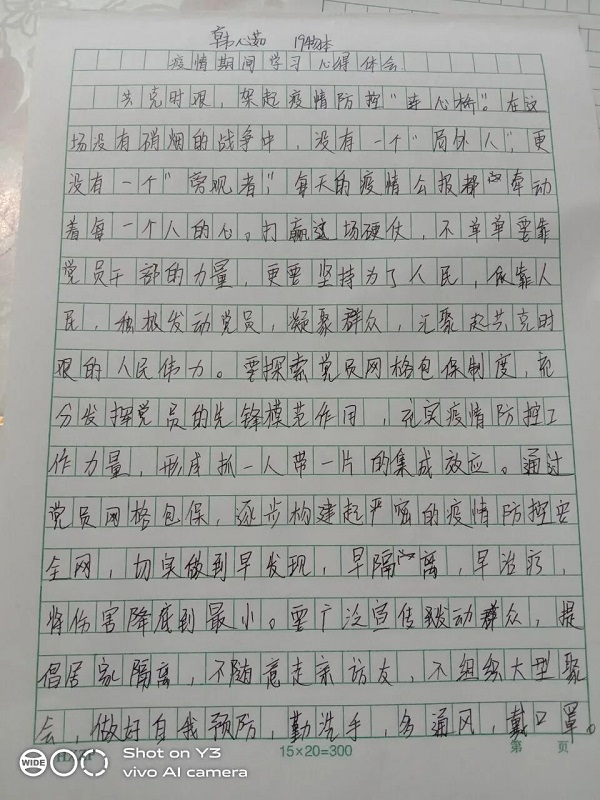 韩心茹 19物本
疫情期间学习心得体会
共克时艰，架起疫情防控"连心桥"。在这
场没有硝烟的战争中，没有一个"局外人"，更
没有一个"旁观者"，每天的疫情公报都必牵动
着每一个人的心。打赢这场硬仗，不单单要靠
党员干部的力量，更要坚持为了人民，依靠人
民，积极发动党员，凝聚群众，汇聚起共克时
艰的人民伟力。要探索党员网格包保制度，充
分发挥党员的先锋模范作用，充实疫情防控工
作力量，形成抓一人带一片的集成效应。通过
党员网格包保，逐步构建起严密的疫情防控安
全网，切实做到早发现，早隔离，早治疗，
将伤害降底到最小。要广泛宣传发动群众，提
倡居家隔离，不随意走亲访友，不组织大型聚
会，做好自我预防，勤洗手，多通风，戴口罩。
15×20=300
第 页
WIDE
Shot on Y3
vivo AI camera